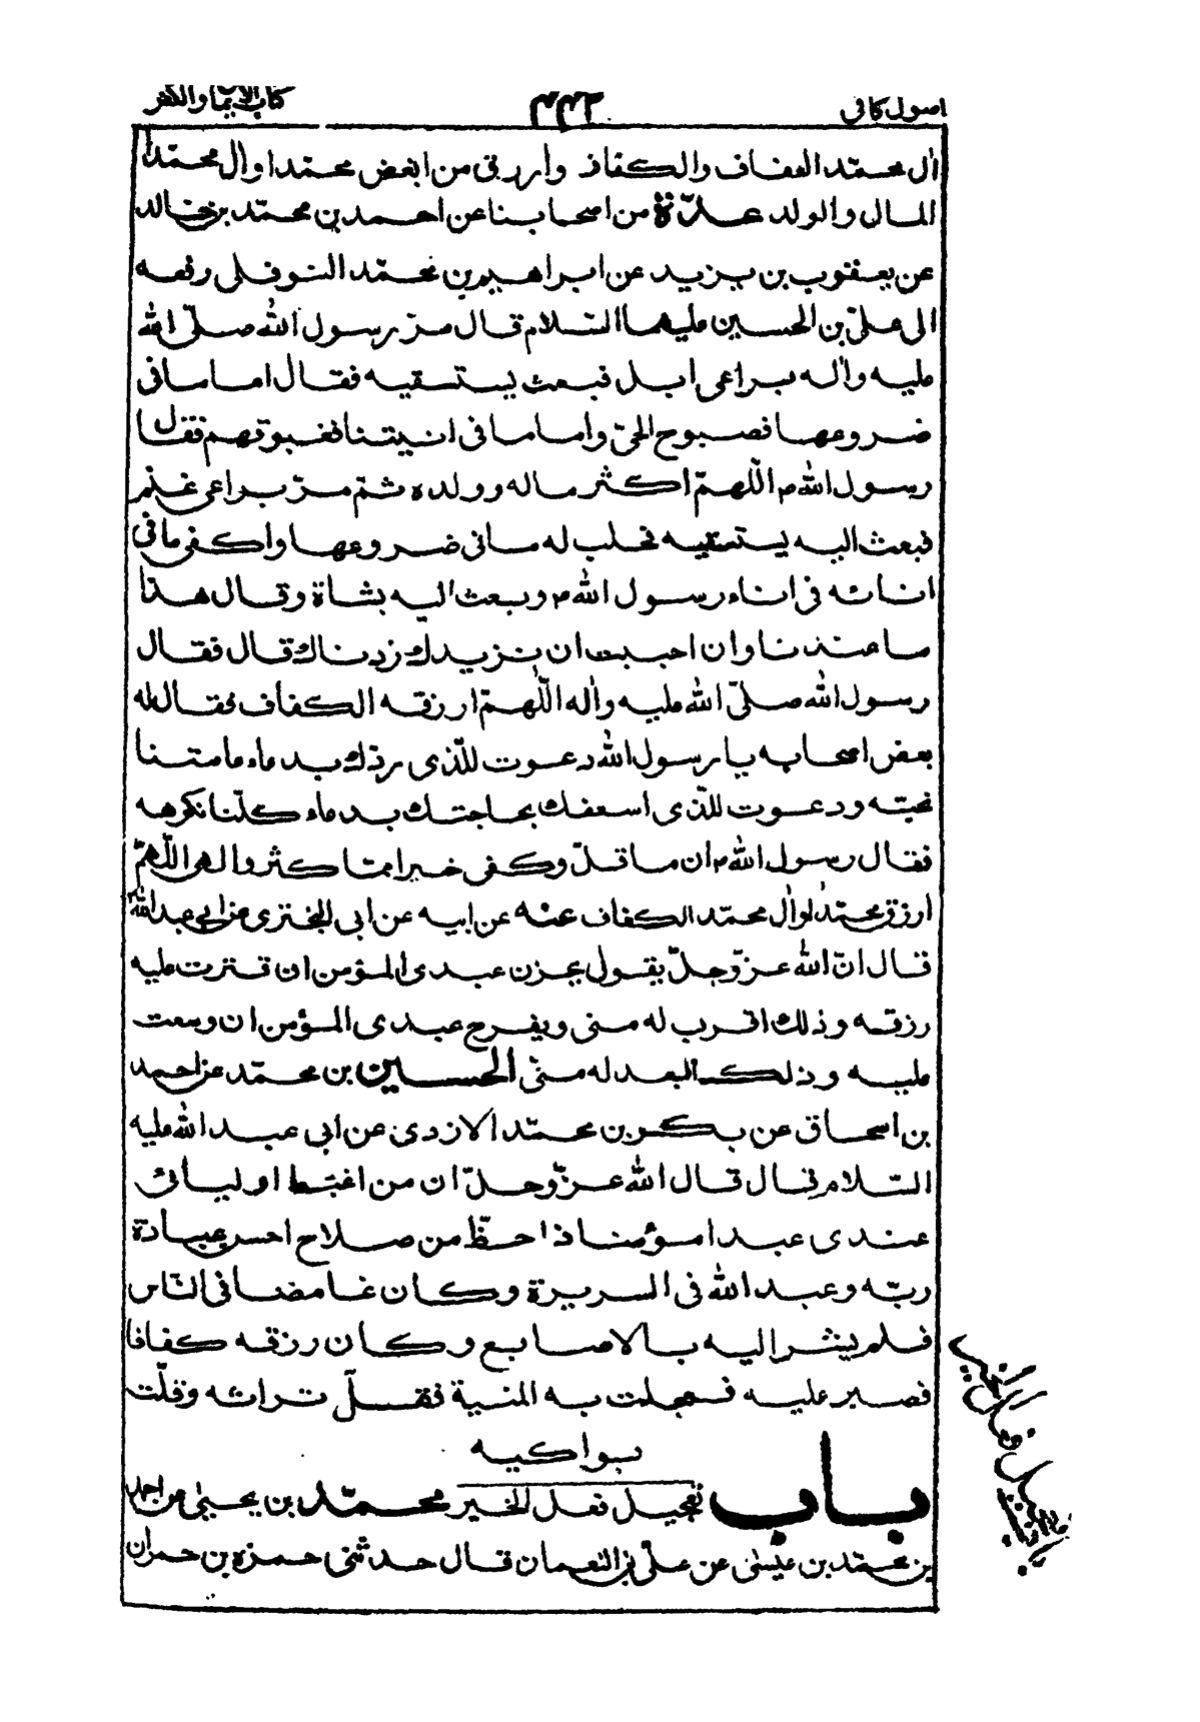 اصول كافى
٤٤٢
كتاب الايمان والكفر
ال محمّد العفاف والكفاف وارزق من ابغض محمّدا وال محمّد
المال والولد عدّة من اصحابنا عن احمد بن محمّد بن خالد
عن يعقوب بن يزيد عن ابراهيم بن محمّد النوفلى رفعه
الى علىّ بن الحسين عليهما السّلام قال مرّ رسول الله صلّى الله
عليه واله براعى ابل فبعث يستسقيه فقال اما ما فى
ضروعها فصبوح الحىّ واما ما فى انيتنا فغبوقهم فقال
رسول الله ص اللّهمّ اكثر ماله وولده ثمّ مرّ براعى غنم
فبعث اليه يستسقيه فحلب له ما فى ضروعها واكفى ما فى
انائه فى اناء رسول الله ص وبعث اليه بشاة وقال هذا
ما عندنا وان احببت ان نزيدك زدناك قال فقال
رسول الله صلّى الله عليه واله اللّهمّ ارزقه الكفاف فقال له
بعض اصحابه يا رسول الله دعوت للّذى ردّك بدعاء عامتنا
نحبّه ودعوت للّذى اسعفك بحاجتك بدعاء كلّنا نكرهه
فقال رسول الله ص ان ما قلّ وكفى خير ممّا كثر والهى اللّهمّ
ارزق محمّدا وال محمّد الكفاف عنه عن ابيه عن ابى البخترى عن ابى عبد الله
قال انّ الله عزّ وجلّ يقول يحزن عبدى المؤمن ان قترت عليه
رزقه وذلك اقرب له منى ويفرح عبدى المؤمن ان وسعت
عليه وذلك ابعد له منّى الحسين بن محمّد عن احمد
بن اسحاق عن بكر بن محمّد الازدى عن ابى عبد الله عليه
السّلام قال قال الله عزّ وجلّ ان من اغبط اوليائى
عندى عبدا مؤمنا ذا حظّ من صلاح احسن عبادة
ربّه وعبد الله فى السريرة وكان غامضا فى النّاس
فلم يشر اليه بالاصابع وكان رزقه كفافا
فصبر عليه فعجلت به المنية فقلّ تراثه وقلّت
بواكيه
باب تعجيل فعل الخير محمّد بن يحيى عن احمد
بن محمّد بن عيسى عن علىّ بن النعمان قال حدثنى حمزة بن حمران